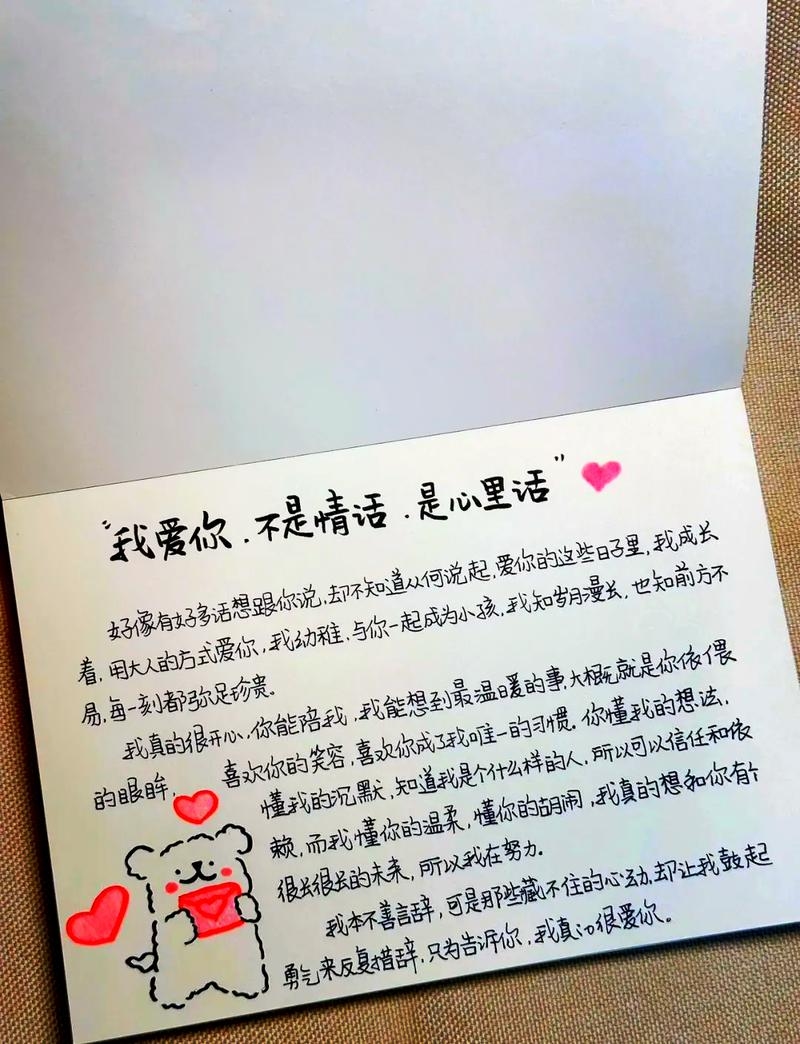 “我爱你.不是情话.是心里话”
好像有好多话想跟你说,却不知道从何说起,爱你的这些日子里,我成长
着,用大人的方式爱你,我幼稚,与你一起成为小孩,我知岁月漫长,也知前方不
易,每一刻都弥足珍贵。
我真的很开心,你能陪我,我能想到最温暖的事,大概就是你依偎
的眼眸, 喜欢你的笑容,喜欢你成了我唯一的习惯。你懂我的想法,
懂我的沉默,知道我是个什么样的人,所以可以信任和依
赖,而我懂你的温柔,懂你的胡闹,我真的想和你有个
很长很长的未来,所以我在努力.
我本不善言辞,可是那些藏不住的心动,却让我鼓起
勇气来反复措辞,只为告诉你,我真的很爱你。